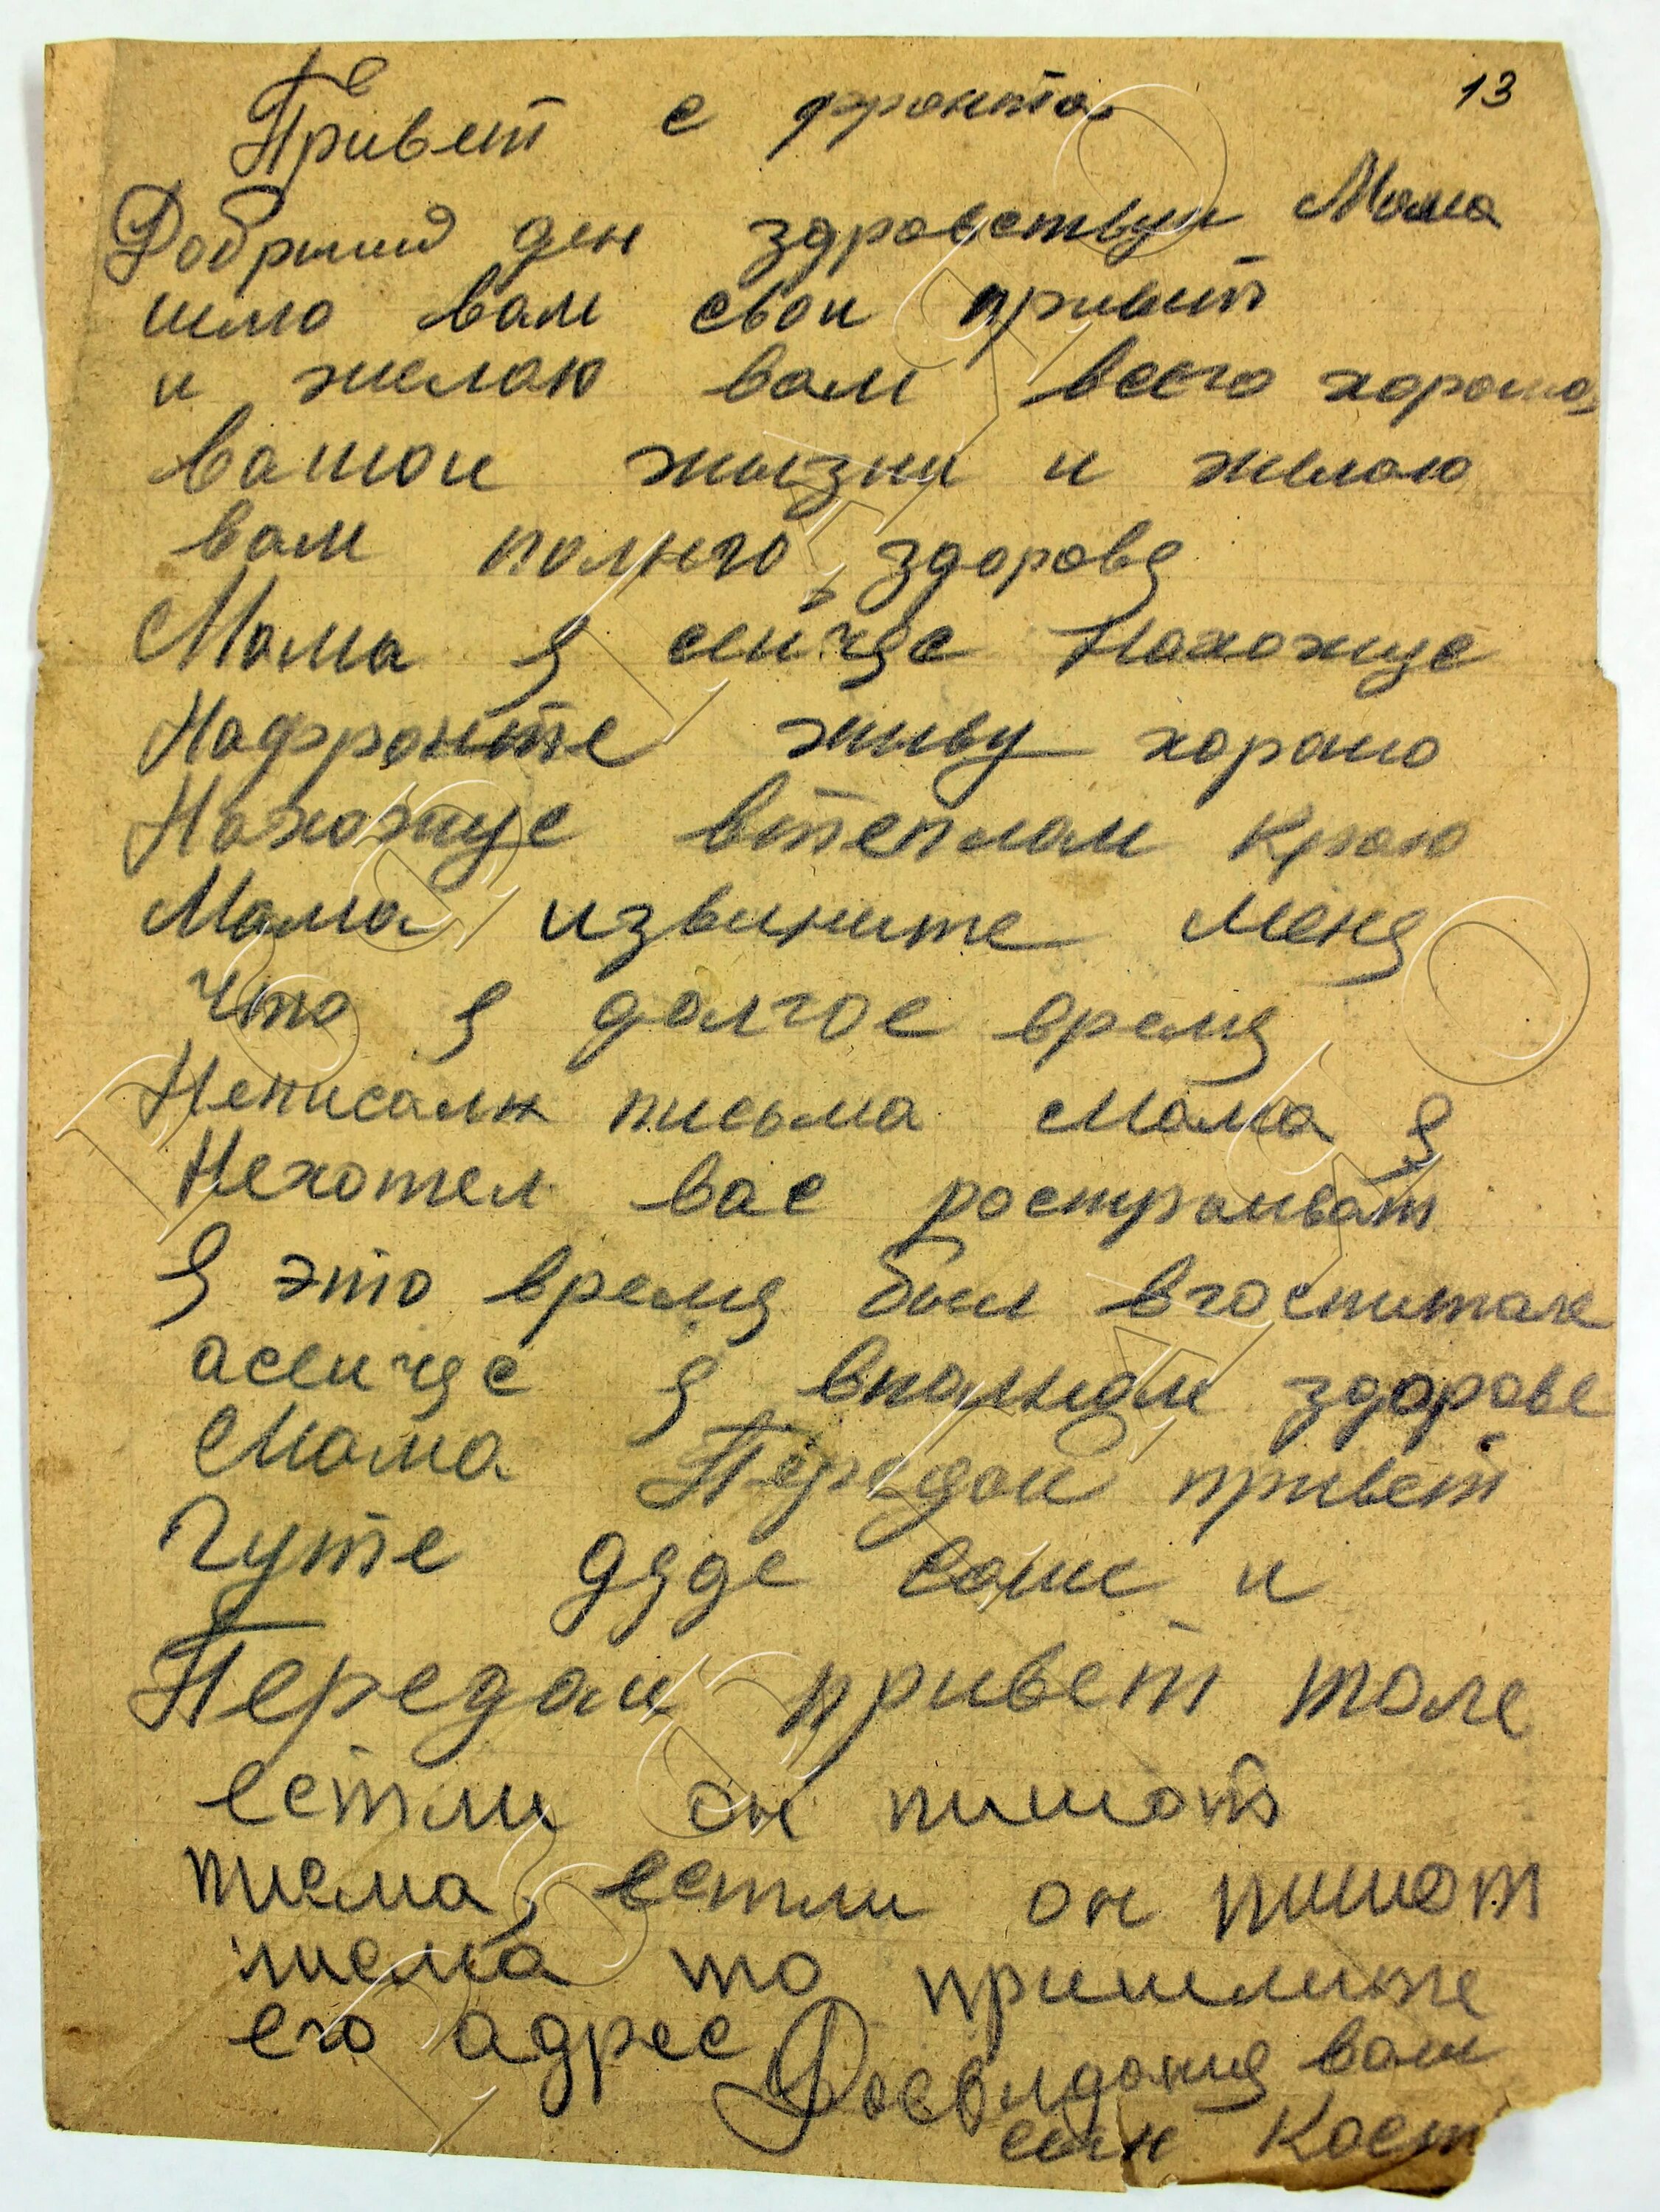 13
Привет с фронта
Добрый ден здравствуи Мама
шлю вам свои привет
и желаю вам всего хорошо
вашои жызни и желаю
вам полного здоровя
Мама я сеичяс Нахожус
Нафронте живу хорошо
Нахожус втеплом краю
Мама извините меня
что я долгое время
Неписал письма Мама я
Нехотел вас ростраиват
Я это время был вгоспитале
асеичяс я вполном здорове
Мама Передаи привет
Гуте дяде саши и
Передаи привет толе
естли он пишот
писма, естли он пишот
писма то пришлите
его адрес Досвидания ваш
сын Кост